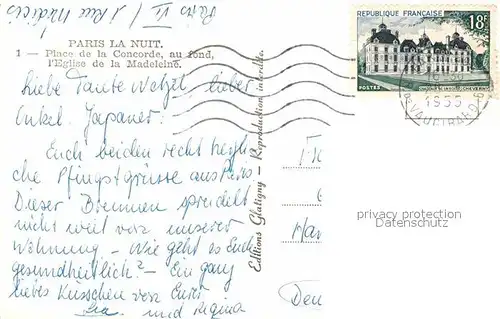 Paris VI / 1 Rue Médicis
PARIS LA NUIT.
1 — Place de la Concorde, au fond,
l'Eglise de la Madeleine.
REPUBLIQUE FRANÇAISE
18F
POSTES
1955
VAUGIRARD
Liebe Tante Wetzl, lieber
Onkel Japaner!
Euch beiden recht herzli-
che Pfingstgrüsse aus Paris
Dieser Brunnen sprudelt
nicht weit von unserer
Wohnung – Wie geht es Euch
gesundheitlich? – Ein ganz
liebes Küsschen von Eurer
und Regina
Editions Glatigny — Reproduction interdite.
Fr
Ha
Deu
privacy protection
Datenschutz